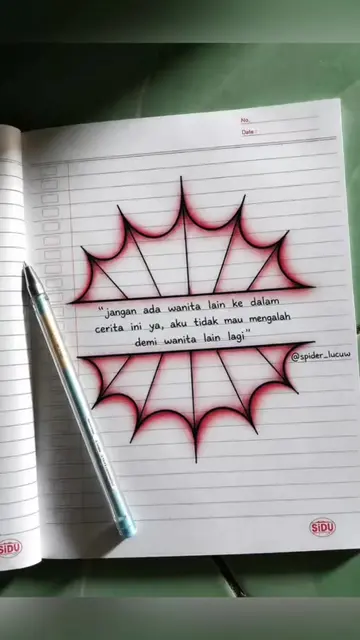 No.
Date :
"jangan ada wanita lain ke dalam
cerita ini ya, aku tidak mau mengalah
demi wanita lain lagi"
@spider_lucuw
SiDU
SiDU